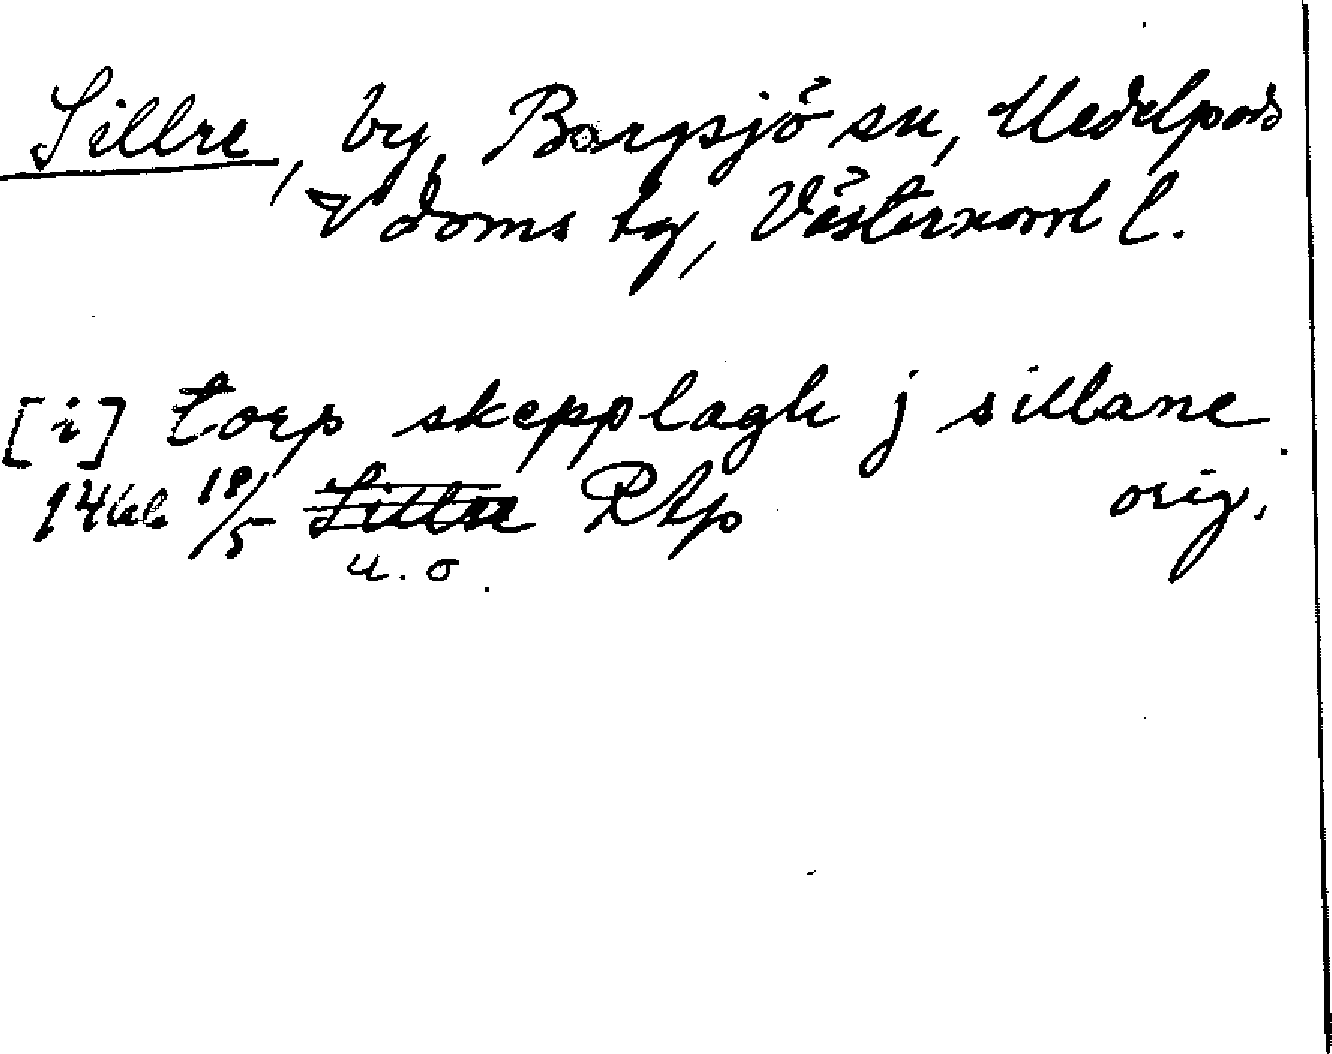 Sillre, by, Borgsjö sn, Medelpads
V doms tg, Västernorrl l.
[i] torp skepplagh j sillane
1466 18/5 Sillre RAp orig.
u. o.